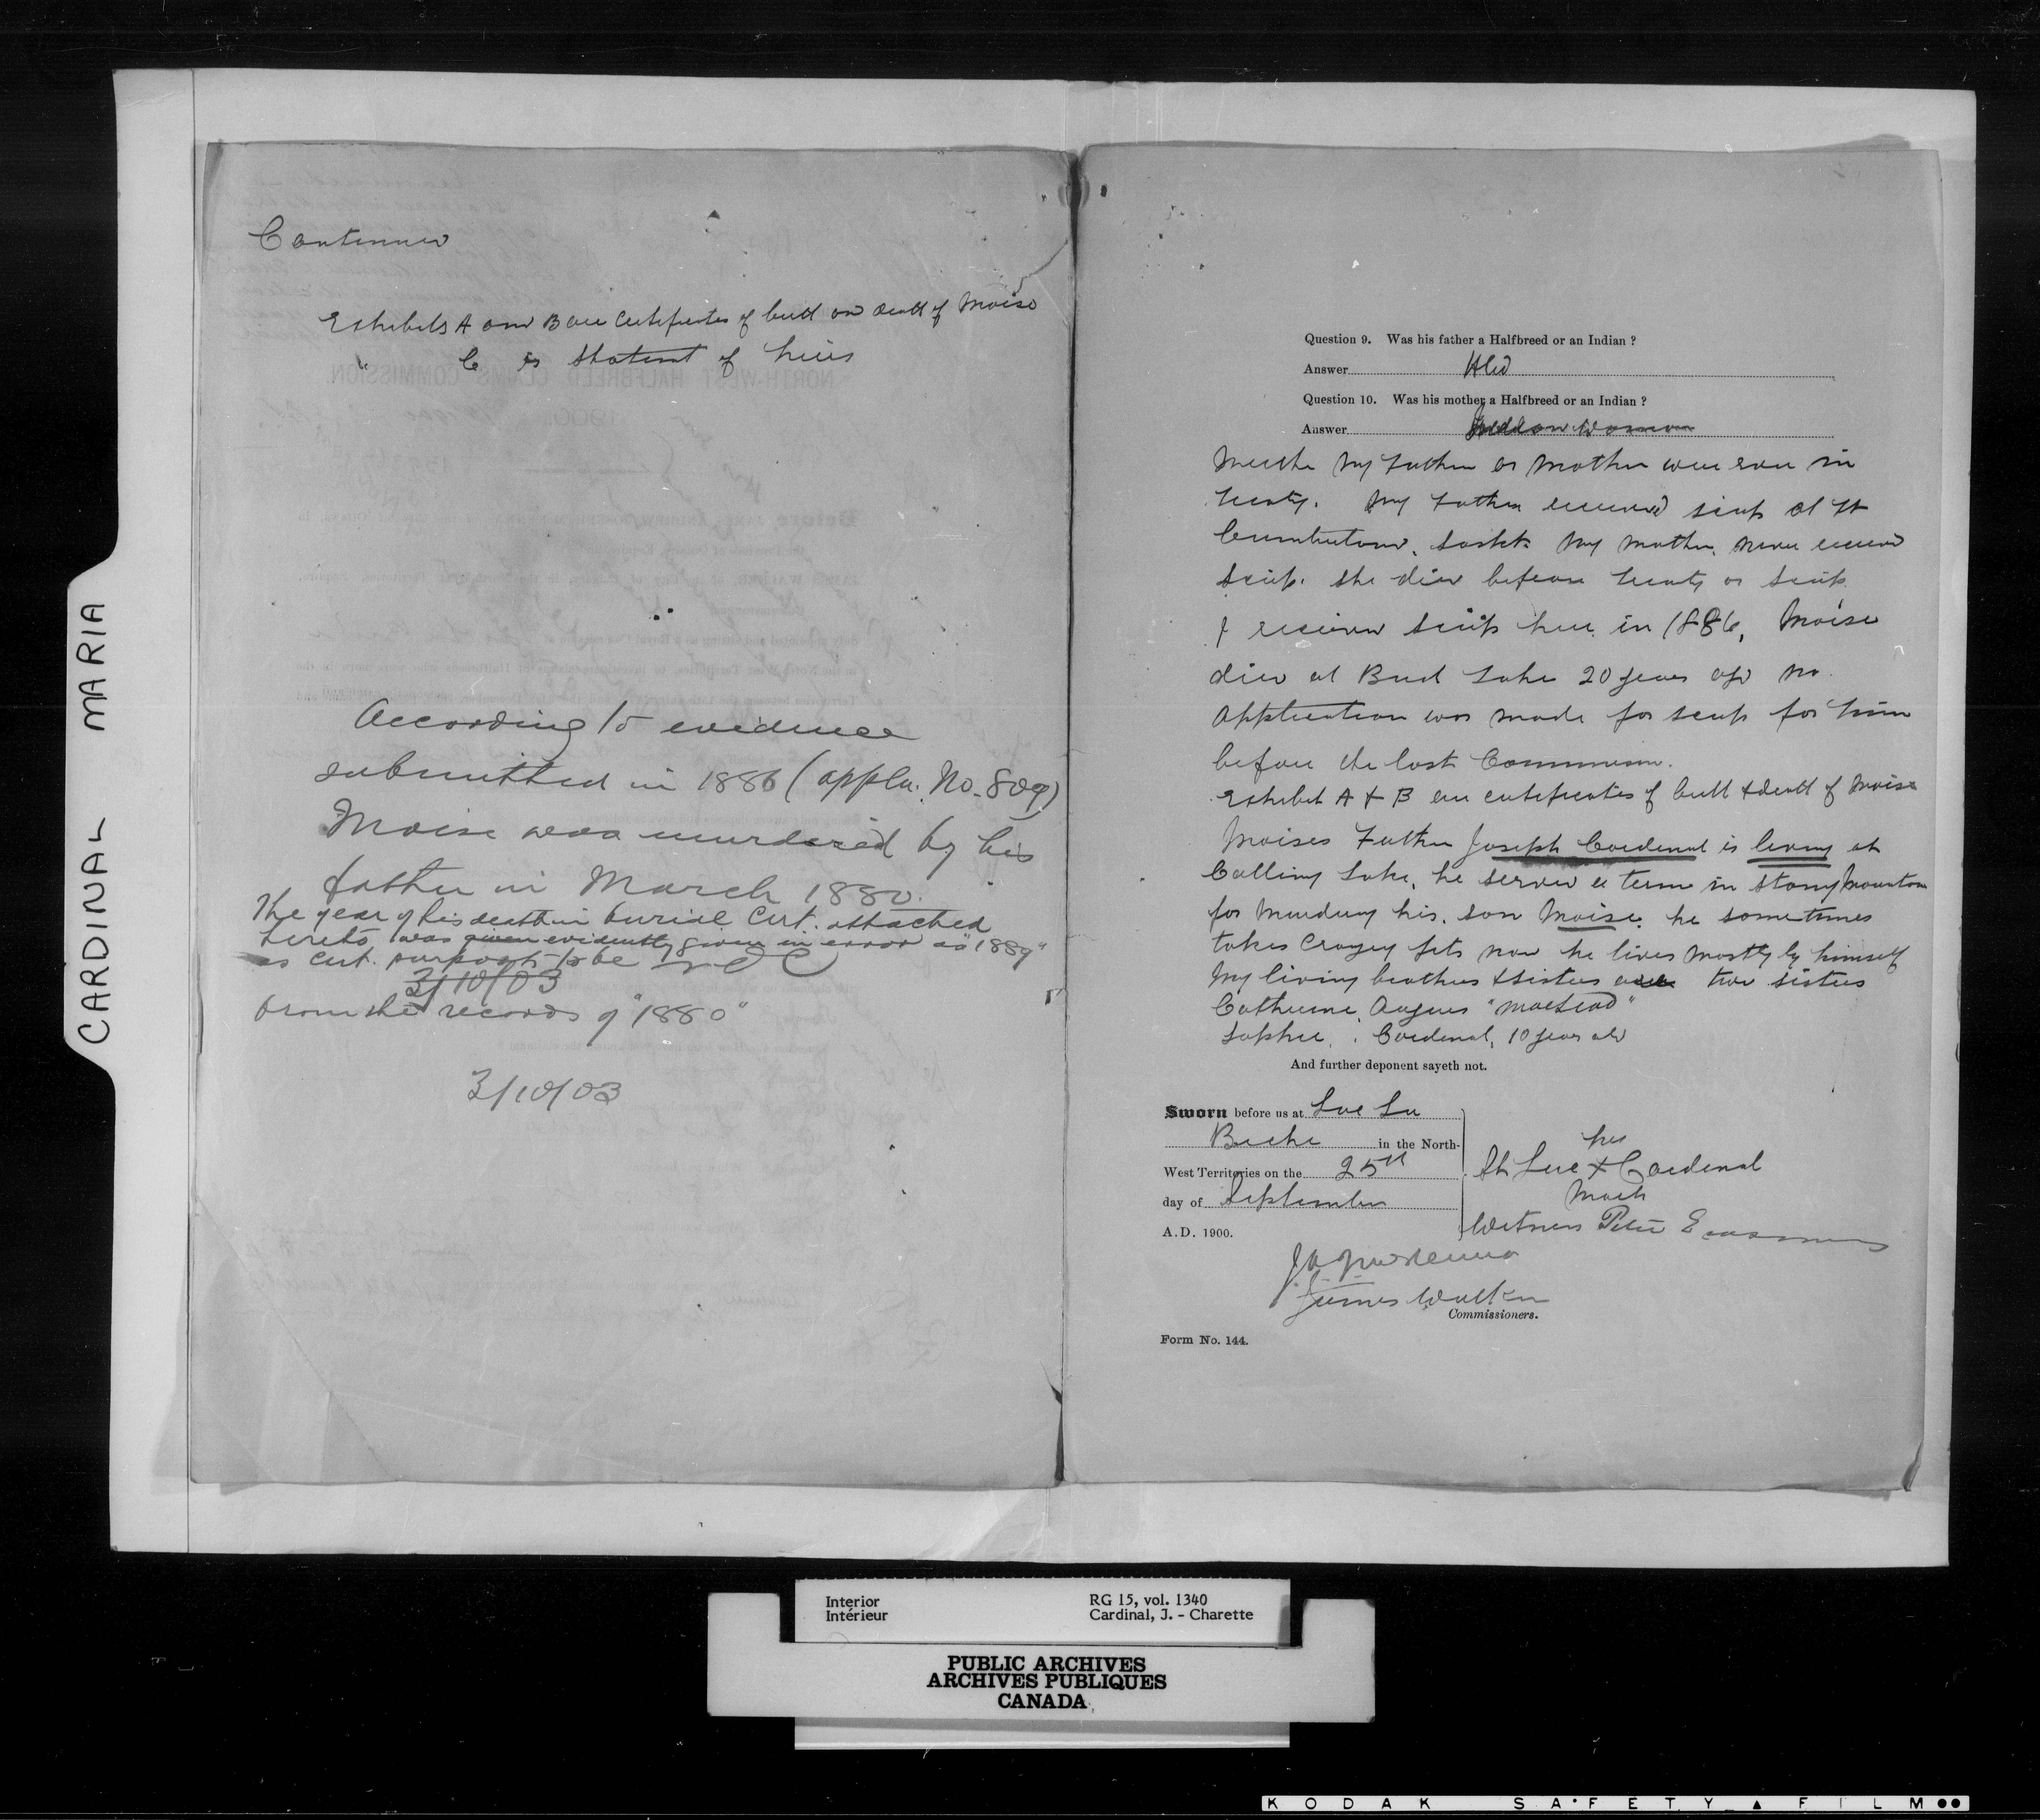 CARDINAL MARIA
Continued
Exhibits A and B are Certificates of birth and death of Moise
" C is Statement of heirs
According to evidence
submitted in 1886 (appln. No. 809)
Moise was murdered by his
father in March 1880.
The year of his death in burial Cert. attached
hereto was given evidently given in error as "1889"
as Cert. purports to be
3/10/03
from the records of "1880"
3/10/03
Question 9. Was his father a Halfbreed or an Indian ?
Answer HBd
Question 10. Was his mother a Halfbreed or an Indian ?
Answer Indian Woman
Neither My Father or Mother were ever in
treaty. My Father received scrip at Ft
Cumberland, Sask. My mother never received
Scrip. She died before treaty or Scrip.
I received Scrip here in 1886, Moise
died at Lake 20 years ago No
Application was made for scrip for him
before the last Commission.
Exhibit A & B are certificates of birth & death of Moise
Moises Father Joseph Cardinal is living at
Calling Lake, he served a term in Stony Mountain
for Murdering his son Moise. he sometimes
takes Crazy fits now he lives mostly by himself
My living brothers & sisters are two sisters
Catherine,
Sophie, Cardinal, 10 years old
And further deponent sayeth not.
Sworn before us at Lac La
Biche in the North-
West Territories on the 25th
day of September
A.D. 1900.
his
St Luc X Cardinal
Mark
Witness Peter Erasmus
J A McKenna
James Walker
Commissioners.
Form No. 144.
Interior
Intérieur
RG 15, vol. 1340
Cardinal, J. - Charette
PUBLIC ARCHIVES
ARCHIVES PUBLIQUES
CANADA
KODAK SAFETY FILM